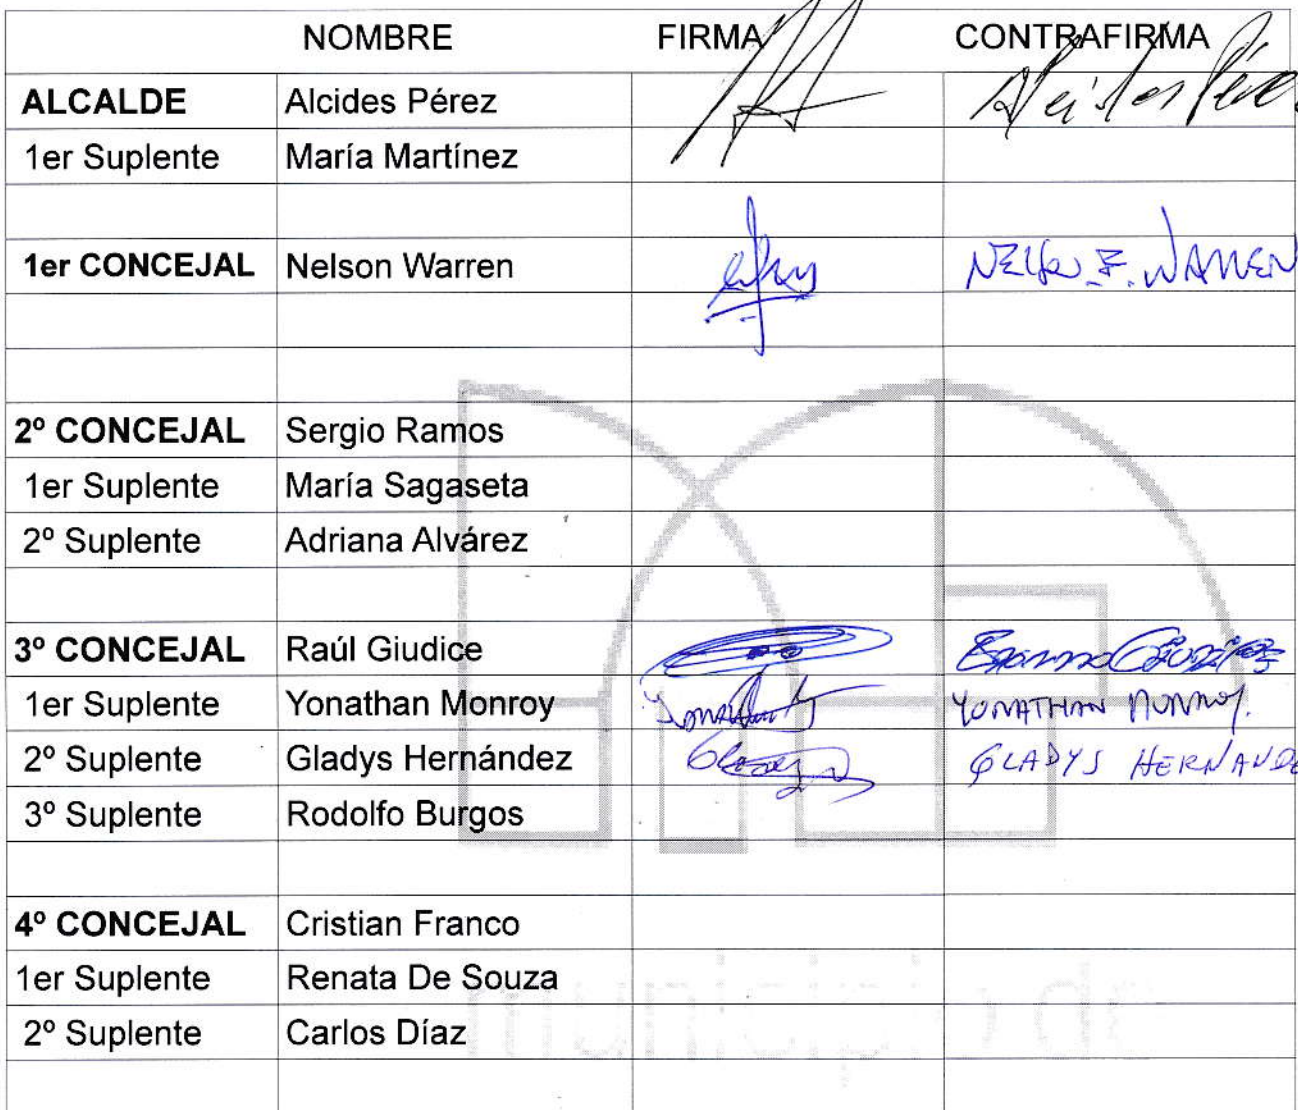 NOMBRE FIRMA CONTRAFIRMA
ALCALDE Alcides Pérez Alcides Pérez
1er Suplente María Martínez
1er CONCEJAL Nelson Warren NELSON F. WARREN
2º CONCEJAL Sergio Ramos
1er Suplente María Sagaseta
2º Suplente Adriana Alvárez
3º CONCEJAL Raúl Giudice
1er Suplente Yonathan Monroy YONATHAN MONROY.
2º Suplente Gladys Hernández GLADYS HERNANDE
3º Suplente Rodolfo Burgos
4º CONCEJAL Cristian Franco
1er Suplente Renata De Souza
2º Suplente Carlos Díaz
municipio de